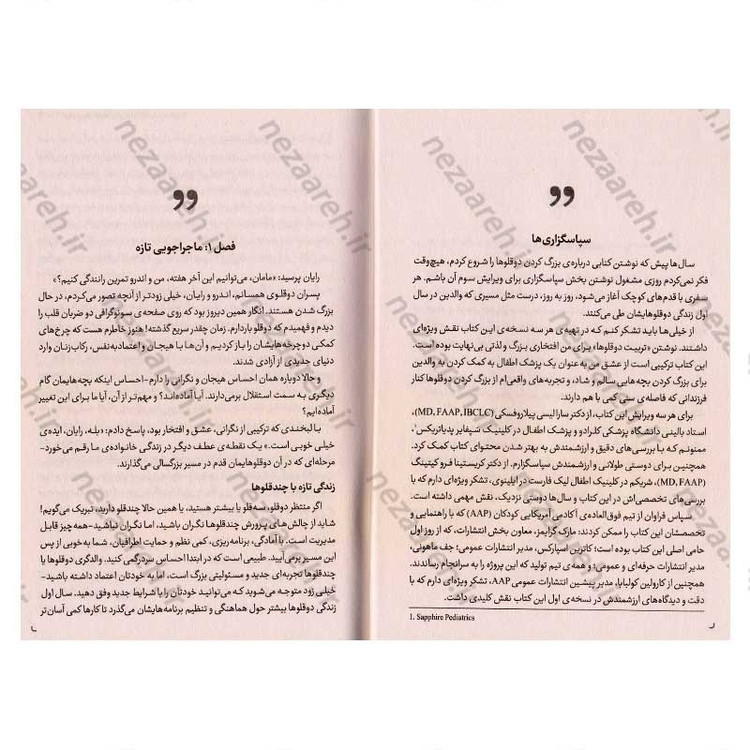 سپاسگزاری‌ها
سال‌ها پیش که نوشتن کتابی درباره‌ی بزرگ کردن دوقلوها را شروع کردم، هیچ‌وقت
فکر نمی‌کردم روزی مشغول نوشتن بخش سپاسگزاری برای ویرایش سوم آن باشم. هر
سفری با قدم‌های کوچک آغاز می‌شود، روز به روز، درست مثل مسیری که والدین در سال
اول زندگی دوقلوهایشان طی می‌کنند.
از خیلی‌ها باید تشکر کنم که در تهیه‌ی هر سه نسخه‌ی این کتاب نقش ویژه‌ای
داشتند. نوشتن «تربیت دوقلوها» برای من افتخاری بزرگ و لذتی بی‌نهایت بوده است.
این کتاب ترکیبی است از عشق من به عنوان یک پزشک اطفال به کمک کردن به والدین
برای بزرگ کردن بچه‌هایی سالم و شاد، و تجربه‌های واقعی‌ام از بزرگ کردن دوقلوها کنار
فرزندانی که فاصله‌ی سنی کمی با هم دارند.
برای هر سه ویرایش این کتاب، از دکتر سارا لیسی پیلاروفسکی (MD, FAAP, IBCLC)،
استاد بالینی دانشگاه پزشکی کلرادو و پزشک اطفال در کلینیک سفایر پدیاتریکس¹،
ممنونم که با بررسی‌های دقیق و ارزشمندش به بهتر شدن محتوای کتاب کمک کرد.
همچنین برای دوستی طولانی و ارزشمندش سپاسگزارم. از دکتر کریستینا فرو کیتینگ
(MD, FAAP)، شریکم در کلینیک اطفال لیک فارست در ایلینوی، تشکر ویژه‌ای دارم که با
بررسی‌های تخصصی‌اش در این کتاب و سال‌ها دوستی نزدیک، نقش مهمی داشته است.
سپاس فراوان از تیم فوق‌العاده‌ی آکادمی آمریکایی کودکان (AAP) که با راهنمایی و
تخصصشان این کتاب را ممکن کردند: مارک گرایمز، معاون بخش انتشارات، که از روز اول
حامی اصلی این کتاب بوده است؛ کاترین اسپارکس، مدیر انتشارات عمومی؛ جف ماهونی،
مدیر انتشارات حرفه‌ای و عمومی؛ و همه‌ی تیم تولید که این پروژه را به سرانجام رساندند.
همچنین از کارولین کولبابا، مدیر پیشین انتشارات عمومی AAP، تشکر ویژه‌ای دارم که با
دقت و دیدگاه‌های ارزشمندش در نسخه‌ی اول این کتاب نقش کلیدی داشت.
1. Sapphire Pediatrics
فصل ۱: ماجراجویی تازه
رایان پرسید: «مامان، می‌توانیم این آخر هفته، من و اندرو تمرین رانندگی کنیم؟»
پسران دوقلوی همسانم، اندرو و رایان، خیلی زودتر از آنچه تصور می‌کردم، در حال
بزرگ شدن هستند. انگار همین دیروز بود که روی صفحه‌ی سونوگرافی دو ضربان قلب را
دیدم و فهمیدم که دوقلو باردارم. زمان چقدر سریع گذشته! هنوز خاطرم هست که چرخ‌های
کمکی دوچرخه‌هایشان را باز کردیم و آن‌ها با هیجان و اعتمادبه‌نفس، رکاب‌زنان وارد
دنیای جدیدی از آزادی شدند.
و حالا دوباره همان احساس هیجان و نگرانی را دارم-احساس اینکه بچه‌هایمان گام
دیگری به سمت استقلال برمی‌دارند. آیا آماده‌اند؟ و مهم‌تر از آن، آیا ما برای این تغییر
آماده‌ایم؟
با لبخندی که ترکیبی از نگرانی، عشق و افتخار بود، پاسخ دادم: «بله، رایان، ایده‌ی
خیلی خوبی است.» یک نقطه‌ی عطف دیگر در زندگی خانواده‌ی ما رقم می‌خورد-
مرحله‌ای که در آن دوقلوهایمان قدم در مسیر بزرگسالی می‌گذارند.
زندگی تازه با چندقلوها
اگر منتظر دوقلو، سه‌قلو یا بیشتر هستید، یا همین حالا چندقلو دارید، تبریک می‌گویم!
شاید از چالش‌های پرورش چندقلوها نگران باشید، اما نگران نباشید-همه‌چیز قابل
مدیریت است. با آمادگی، برنامه‌ریزی، کمی نظم و حمایت اطرافیان، شما به‌خوبی از پس
این مسیر برمی‌آیید. طبیعی است که در ابتدا احساس سردرگمی کنید. والدگری دوقلوها یا
چندقلوها تجربه‌ای جدید و مسئولیتی بزرگ است، اما به خودتان اعتماد داشته باشید-
خیلی زود متوجه می‌شوید که می‌توانید خودتان را با شرایط جدید وفق دهید. سال اول
زندگی دوقلوها بیشتر حول هماهنگی و تنظیم برنامه‌هایشان می‌گذرد تا کارها کمی آسان‌تر
nezaareh.ir